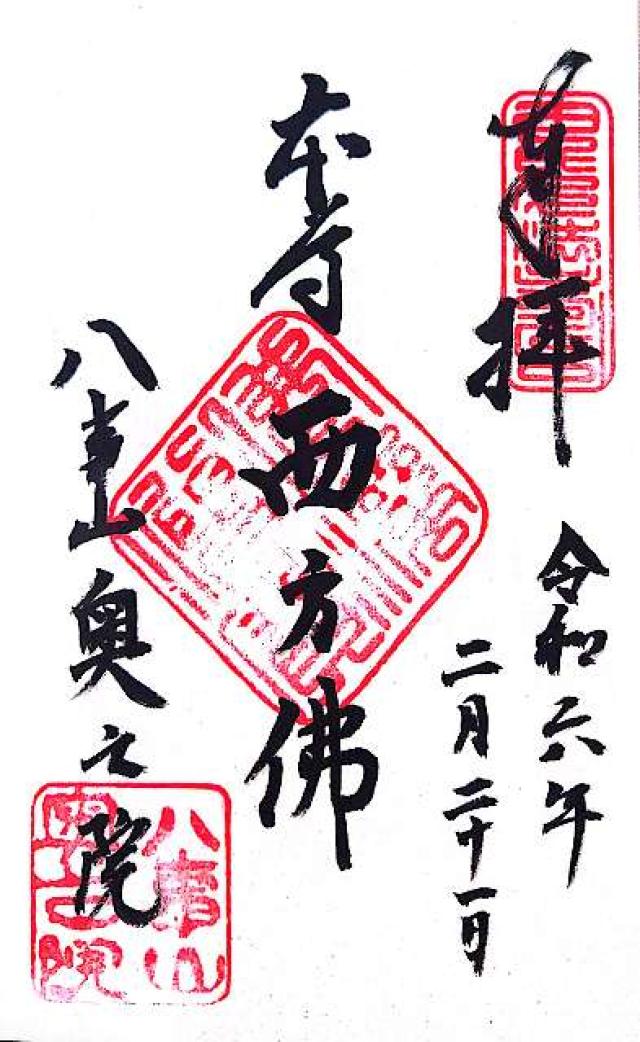 奉拝
令和六年
二月二十一日
本尊
西方佛
八事山奥之院
八事山
奥之院